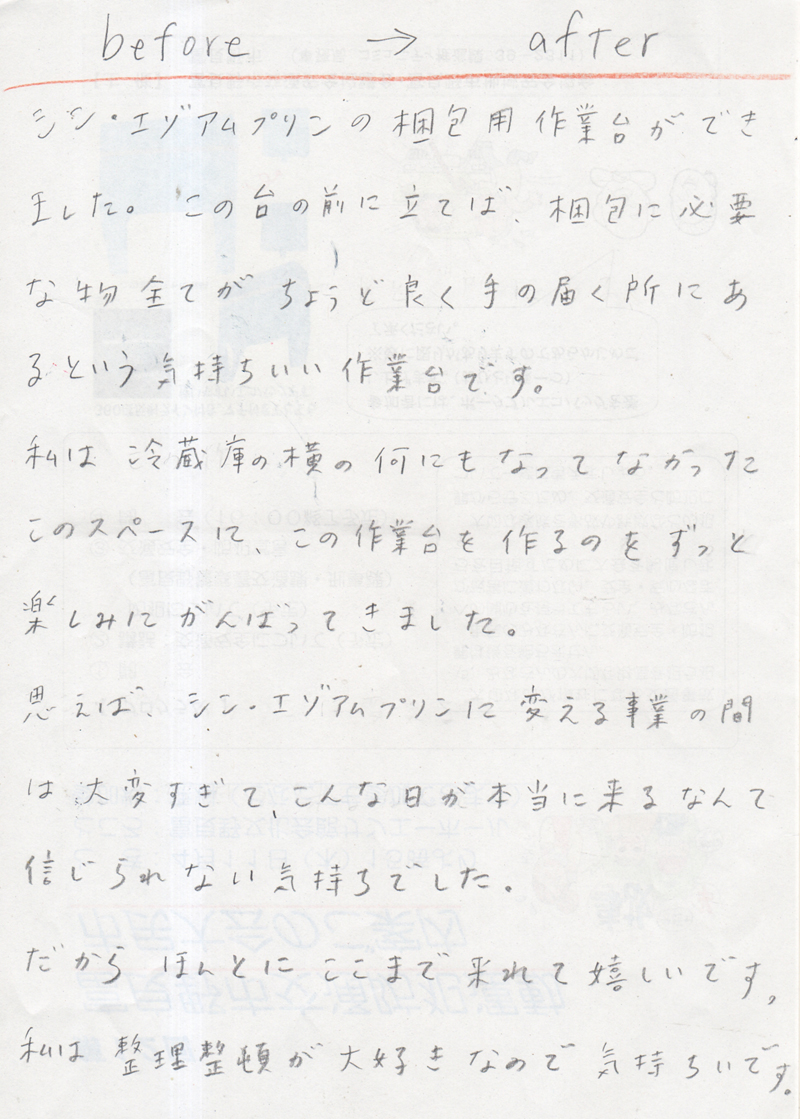 before → after
シン・エゾアムプリンの梱包用作業台ができ
ました。この台の前に立てば、梱包に必要
な物全てがちょうど良く手の届く所にあ
るという気持ちいい作業台です。
私は冷蔵庫の横の何にもなってなかった
このスペースに、この作業台を作るのをずっと
楽しみにがんばってきました。
思えば、シン・エゾアムプリンに変える事業の間
は大変すぎて、こんな日が本当に来るなんて
信じられない気持ちでした。
だからほんとにここまで来れて嬉しいです。
私は整理整頓が大好きなので気持ちいです。